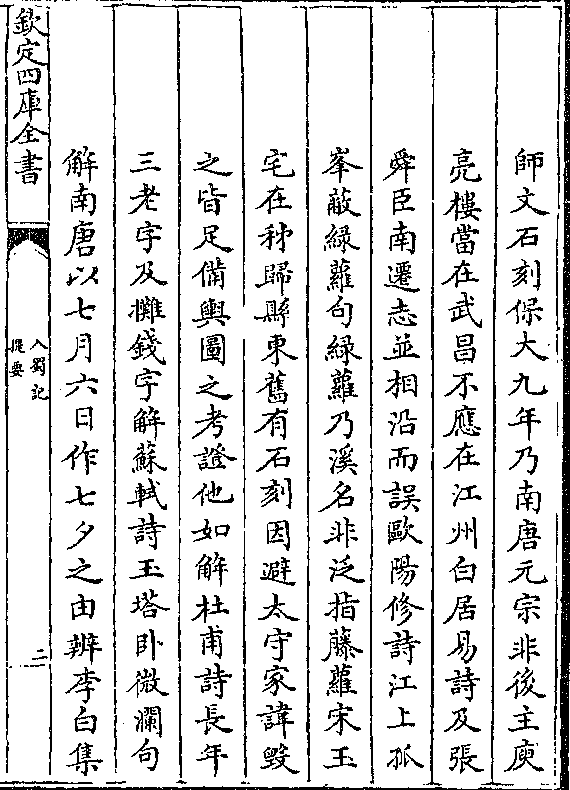 師文石刻保大九年乃南唐元宗非後主庾
亮樓當在武昌不應在江州白居易詩及張
舜臣南遷志並相沿而誤歐陽修詩江上孤
峯蔽緑蘿句緑蘿乃溪名非泛指藤蘿宋玉
宅在秭歸縣東舊有石刻因避太守家諱毀
之皆足備輿圖之考證他如解杜甫詩長年
三老字及攤錢字解蘇軾詩玉塔卧微瀾句
解南唐以七月六日作七夕之由辨李白集
欽定四庫全書
入蜀記
提要
二